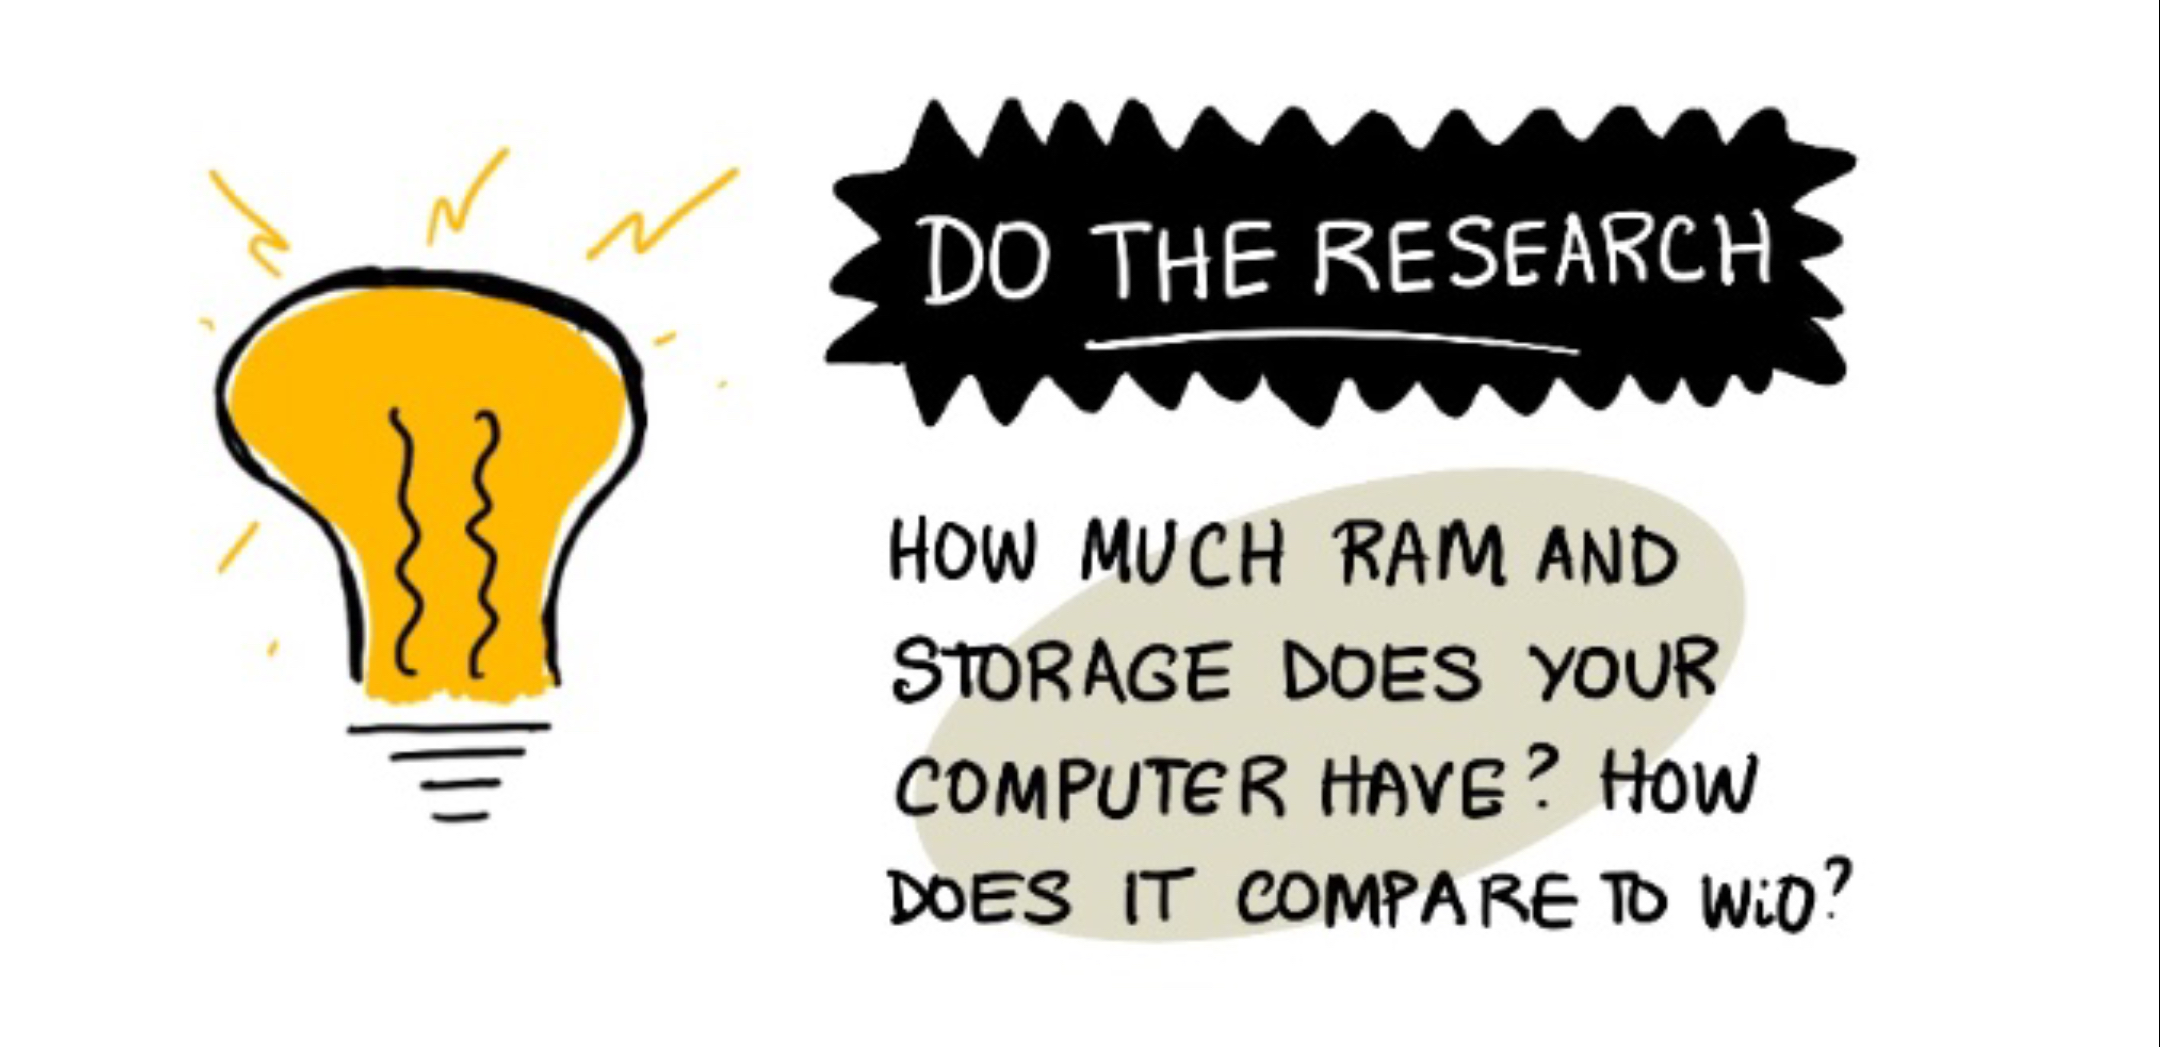 DO THE RESEARCH
HOW MUCH RAM AND
STORAGE DOES YOUR
COMPUTER HAVE? HOW
DOES IT COMPARE TO WiO?